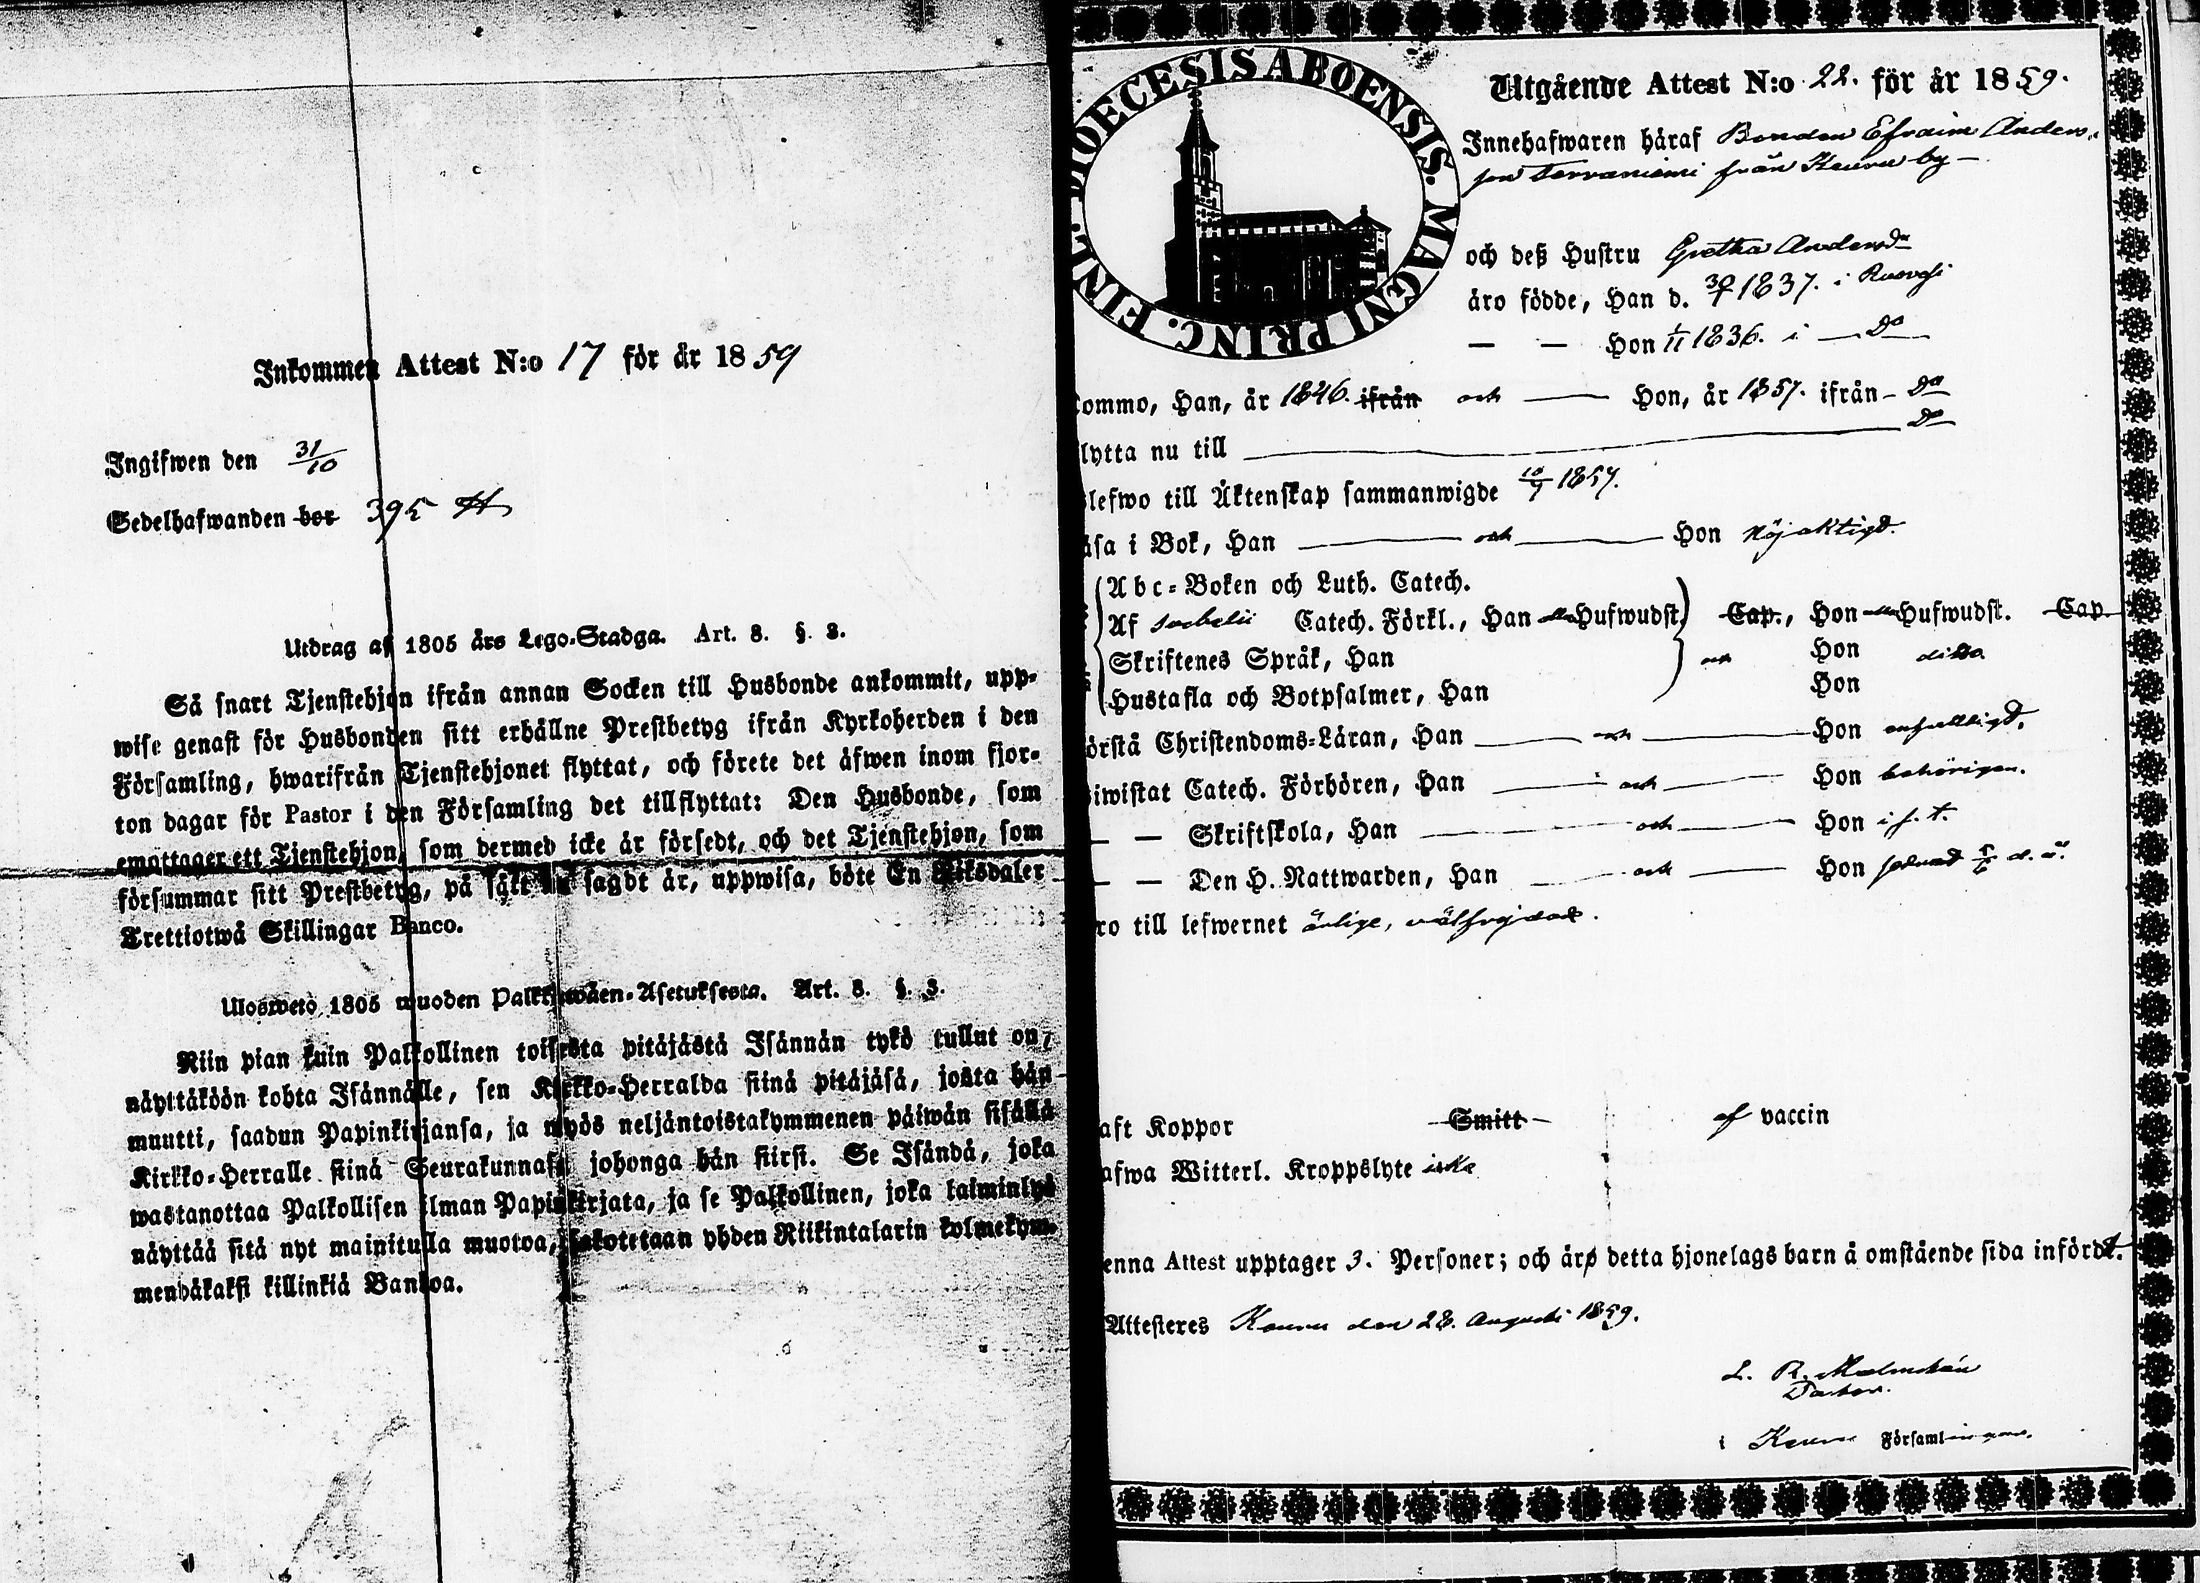 Inkommen Attest N:o 17 för år 1859
Ingifwen den 31/10
Sedelhafwanden bor 395
Utdrag af 1805 års Lego-Stadga. Art. 8. §. 3.
Så snart Tjenstehjon ifrån annan Socken till Husbonde ankommit, upp-
wise genast för Husbonden sitt erhållne Prestbetyg ifrån Kyrkoherden i den
Församling, hwarifrån Tjenstehjonet flyttat, och förete det äfwen inom fjor-
ton dagar för Pastor i den Församling det tillflyttat: Den Husbonde, som
emottager ett Tjenstehjon, som dermed icke är försedt, och det Tjenstehjon, som
försummar sitt Prestbetyg, på sätt sagdt är, uppwisa, böte En Riksdaler
Trettiotwå Skillingar Banco.
Uloswetö 1805 wuoden Palkkawäen-Asetuksesta. Art. 8. §. 3.
Niin pian kuin Palkollinen toisesta pitäjästä Isännän tykö tullut on,
näyttäköön kohta Isännälle, sen Kirkko-Herralda siinä pitäjäsä, josta hän
muutti, saadun Papinkirjansa, ja myös neljäntoistakymmenen päiwän sisällä
Kirkko-Herralle siinä Seurakunnasa johonga hän siirsi. Se Isändä, joka
wastanottaa Palkollisen ilman Papinkirjata, ja se Palkollinen, joka laiminlyö
näyttää sitä nyt mainitulla muotoa, sakotetaan yhden Riikintalarin kolmekym-
mendäkaksi killinkiä Bankoa.
DIOECESIS ABOENSIS. MAGNI PRINC. FINL.
Utgående Attest N:o 22. för år 1859.
Innehafwaren häraf Bonden Efraim Anders-
son från Keuru by
och deß Hustru Gretha Andersdr
äro födde, Han d. 1837. i Ruovesi
— — Hon 1/11 1836. i — Do
ommo, Han, år 1846. ifrån och — Hon, år 1857. ifrån - Do
lytta nu till — Do
lefwo till Äktenskap sammanwigde 10/7 1857.
äsa i Bok, Han — och — Hon nöjaktigt.
Abc-Boken och Luth. Catech.
Af Svebelii Catech. Förkl., Han alla Hufwudst. Cap., Hon alla Hufwudst. Cap.
Skriftenes Språk, Han och Hon ditto
Hustafla och Botpsalmer, Han Hon
örstå Christendoms-Läran, Han — och — Hon enfalldigt.
iwistat Catech. Förhören, Han — och — Hon behörigen.
— — Skriftskola, Han — och — Hon
— — Den H. Nattwarden, Han — och — Hon d. å.
ro till lefwernet ärlige, välfrejdade.
aft Koppor Smitt af vaccin
afwa Witterl. Kroppslyte icke
enna Attest upptager 3. Personer; och äro detta hjonelags barn å omstående sida infördt.
Attesteres Keuru den 28. Augusti 1859.
L. R. Malmstén
Pastor.
i Keuru Församlingar.